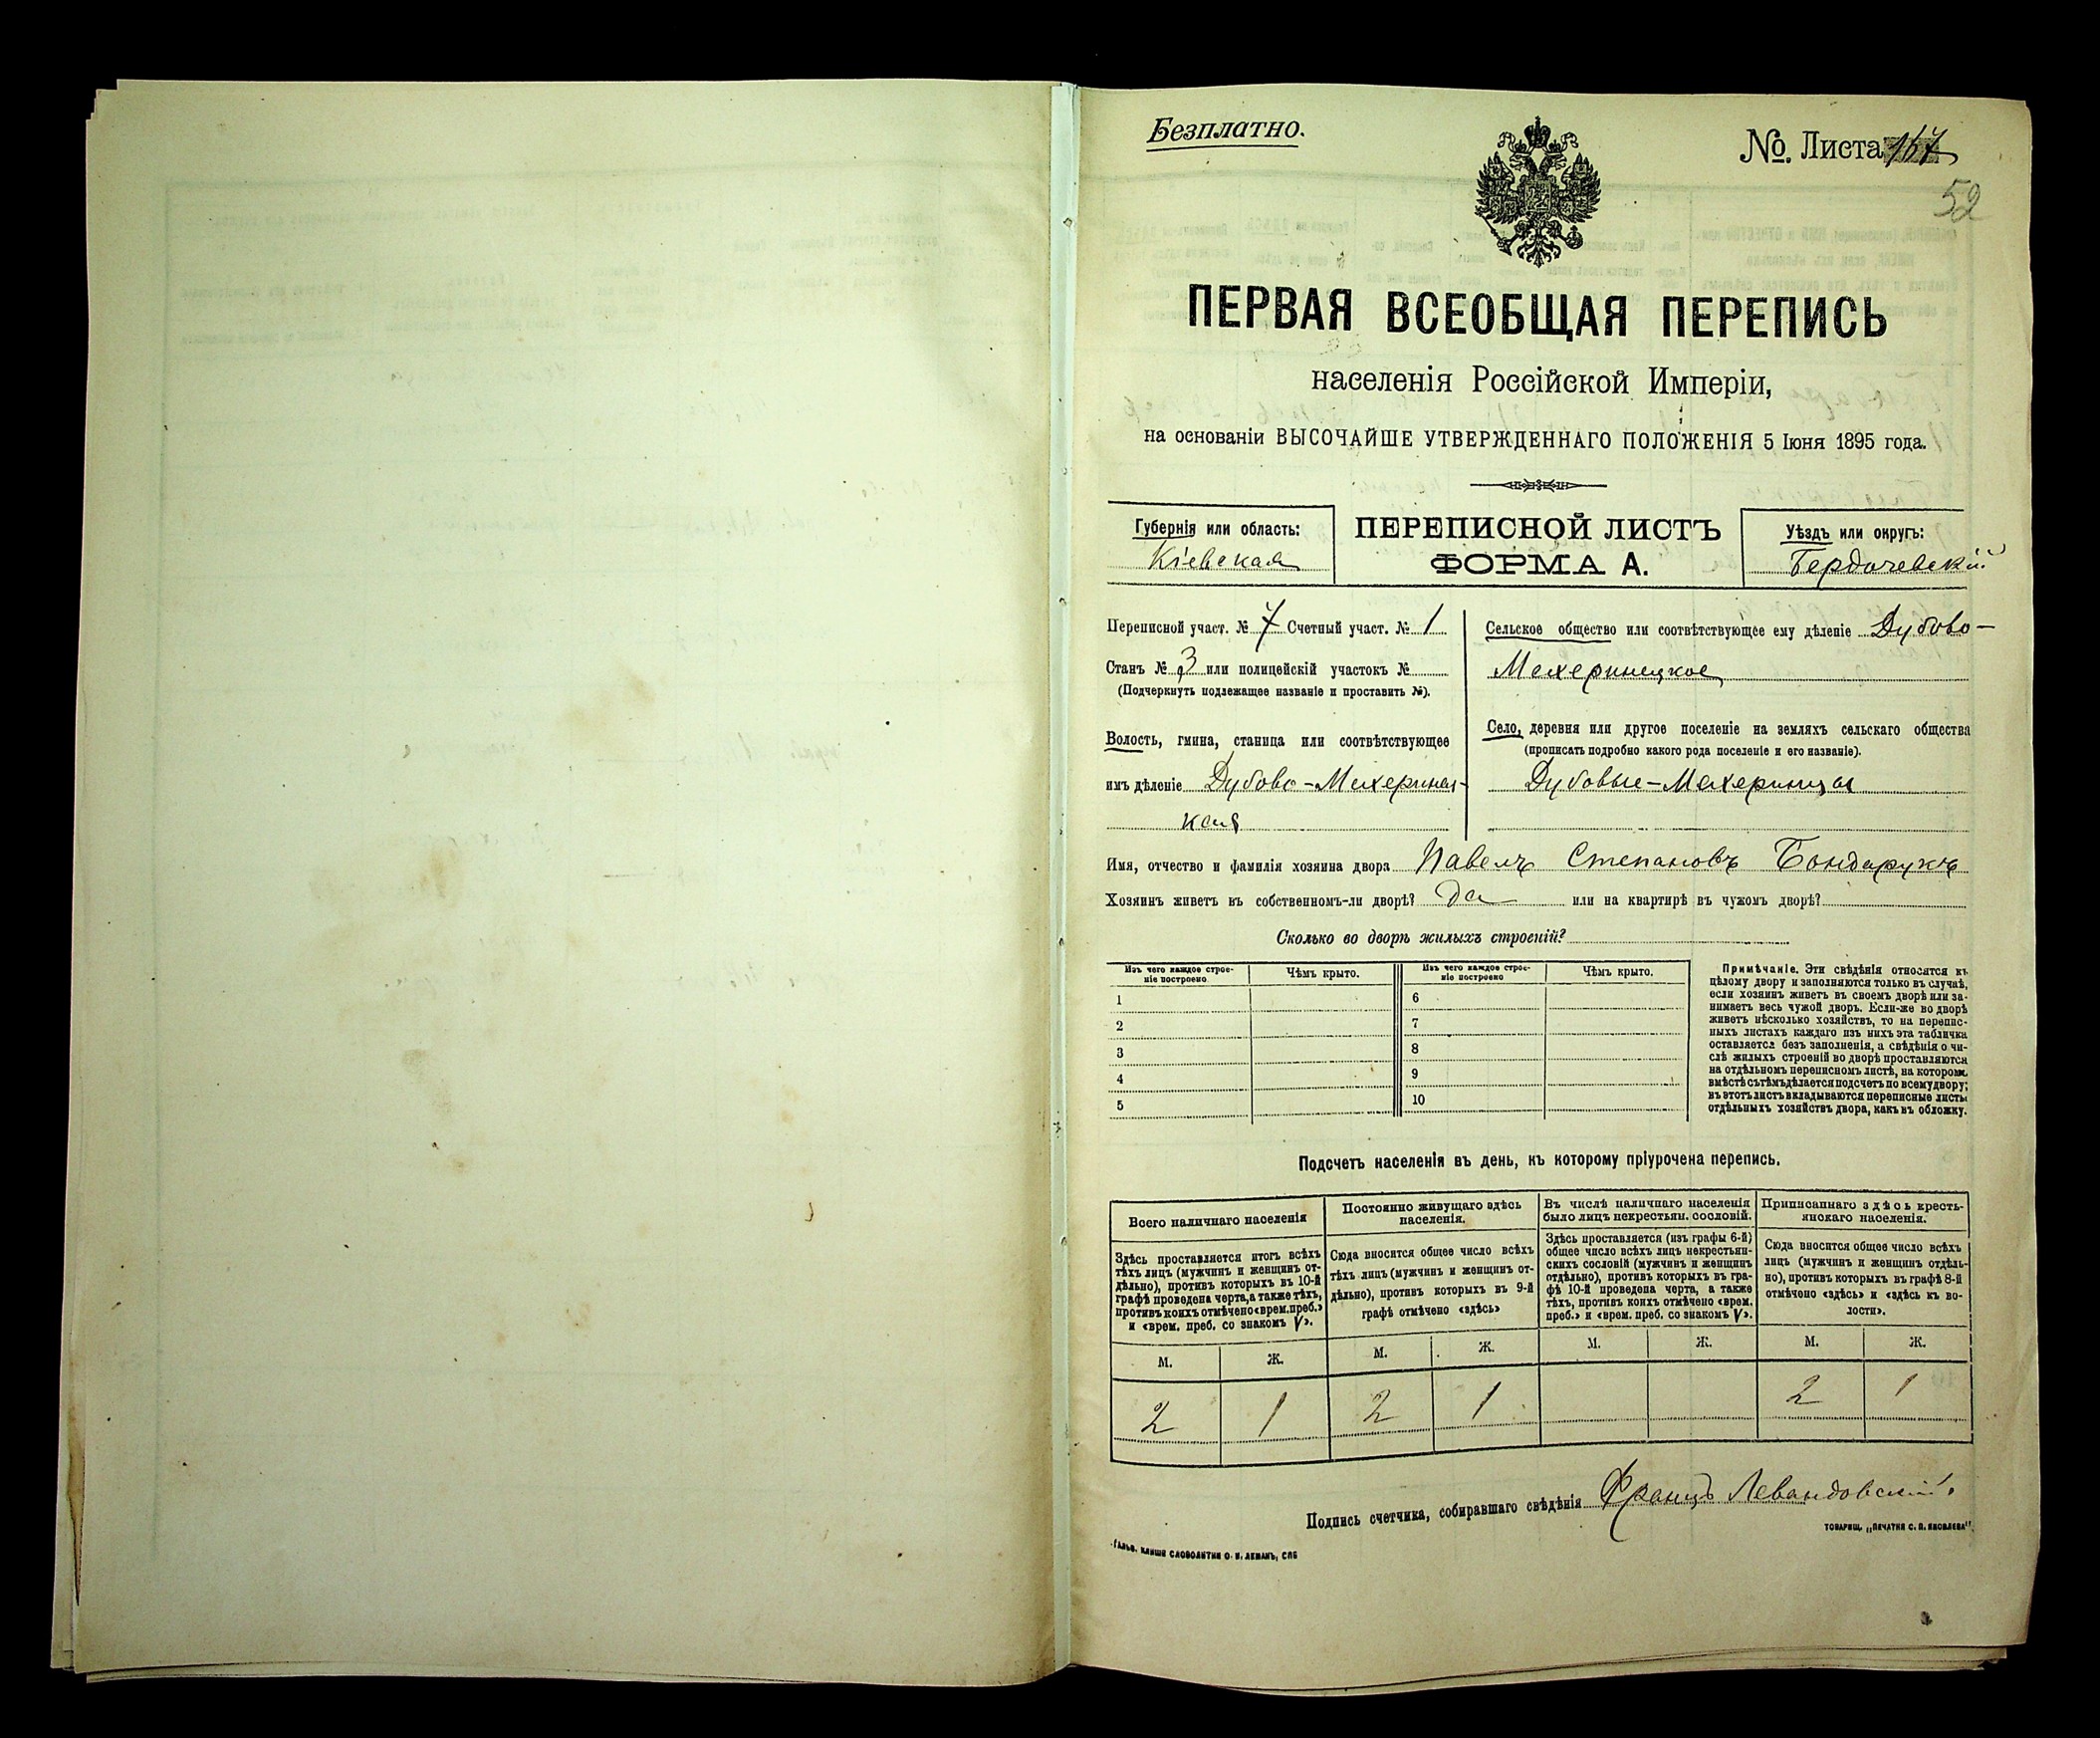 Безплатно.
№ Листа 157
52
ПЕРВАЯ ВСЕОБЩАЯ ПЕРЕПИСЬ
населенія Россійской Имперіи,
на основаніи ВЫСОЧАЙШЕ УТВЕРЖДЕННАГО ПОЛОЖЕНІЯ 5 Іюня 1895 года.
Губернія или область:
Кіевская
ПЕРЕПИСНОЙ ЛИСТЪ
ФОРМА А.
Уѣздъ или округъ:
Бердичевскій
Переписной участ. № 7 Счетный участ. № 1
Станъ № 3 или полицейскій участокъ №
(Подчеркнуть подлежащее названіе и проставить №).
Волость, гмина, станица или соотвѣтствующее
имъ дѣленіе Дубово-Махеринец-
кая
Сельское общество или соотвѣтствующее ему дѣленіе Дубово-
Махеринецкое
Село, деревня или другое поселеніе на земляхъ сельскаго общества
(прописать подробно какого рода поселеніе и его названіе).
Дубовые-Махеринцы
Имя, отчество и фамилія хозяина двора Павелъ Степановъ Бондарукъ
Хозяинъ живетъ въ собственномъ-ли дворѣ? да или на квартирѣ въ чужомъ дворѣ?
Сколько во дворѣ жилыхъ строеній?
Изъ чего каждое строе-
ніе построено
Чѣмъ крыто.
1
2
3
4
5
Изъ чего каждое строе-
ніе построено
Чѣмъ крыто.
6
7
8
9
10
Примѣчаніе. Эти свѣдѣнія относятся къ
цѣлому двору и заполняются только въ случаѣ,
если хозяинъ живетъ въ своемъ дворѣ или за-
нимаетъ весь чужой дворъ. Если-же во дворѣ
живетъ нѣсколько хозяйствъ, то на перепис-
ныхъ листахъ каждаго изъ нихъ эта табличка
оставляется безъ заполненія, а свѣдѣнія о чи-
слѣ жилыхъ строеній во дворѣ проставляются
на отдѣльномъ переписномъ листѣ, на которомъ
вмѣстѣ съ тѣмъ дѣлается подсчетъ по всему двору;
въ этотъ листъ вкладываются переписные листы
отдѣльныхъ хозяйствъ двора, какъ въ обложку.
Подсчетъ населенія въ день, къ которому пріурочена перепись.
Всего наличнаго населенія
Здѣсь проставляется итогъ всѣхъ
тѣхъ лицъ (мужчинъ и женщинъ от-
дѣльно), противъ которыхъ въ 10-й
графѣ проведена черта, а также тѣхъ,
противъ коихъ отмѣчено «врем. преб.»
и «врем. преб. со знакомъ V».
Постоянно живущаго здѣсь
населенія.
Сюда вносится общее число всѣхъ
тѣхъ лицъ (мужчинъ и женщинъ от-
дѣльно), противъ которыхъ въ 9-й
графѣ отмѣчено «здѣсь»
Въ числѣ наличнаго населенія
было лицъ некрестьян. сословій.
Здѣсь проставляется (изъ графы 6-й)
общее число всѣхъ лицъ некрестьян-
скихъ сословій (мужчинъ и женщинъ
отдѣльно), противъ которыхъ въ гра-
фѣ 10-й проведена черта, а также
тѣхъ, противъ коихъ отмѣчено «врем.
преб.» и «врем. преб. со знакомъ V».
Приписаннаго здѣсь кресть-
янскаго населенія.
Сюда вносится общее число всѣхъ
лицъ (мужчинъ и женщинъ отдѣль-
но), противъ которыхъ въ графѣ 8-й
отмѣчено «здѣсь» и «здѣсь къ во-
лости».
М. Ж. М. Ж. М. Ж. М. Ж.
2 1 2 1 2 1
Подпись счетчика, собиравшаго свѣдѣнія Францъ Левандовскій.
ТОВАРИЩ. „ПЕЧАТНЯ С. П. ЯКОВЛЕВА".
КЛИШЕ СЛОВОЛИТНИ О. И. ЛЕМАНЪ, СПБ